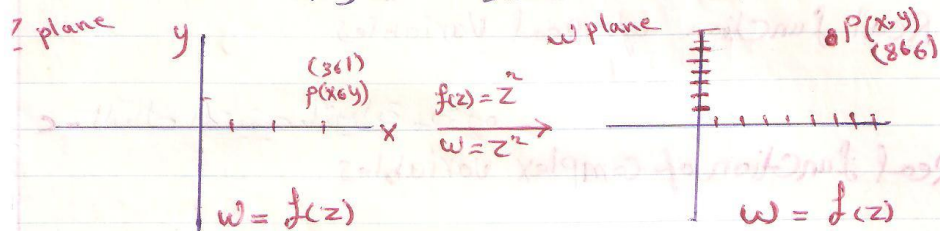 Z plane
y
(3,1)
p(x,y)
x
f(z) = z²
w = z²
w = f(z)
w plane
P(x,y)
(8,6)
w = f(z)